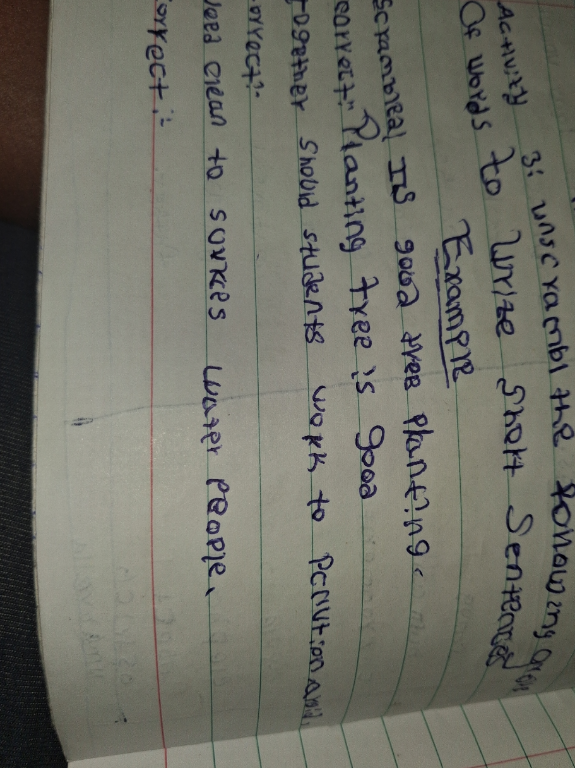 Activity 3: unscrambl the following
Of words to write short Sentences
Example
Scrambled Is good tree planting.
correct:- Planting tree is good
together should students work to Pollution avoid.
correct:-
need clean to sources water people.
correct:-